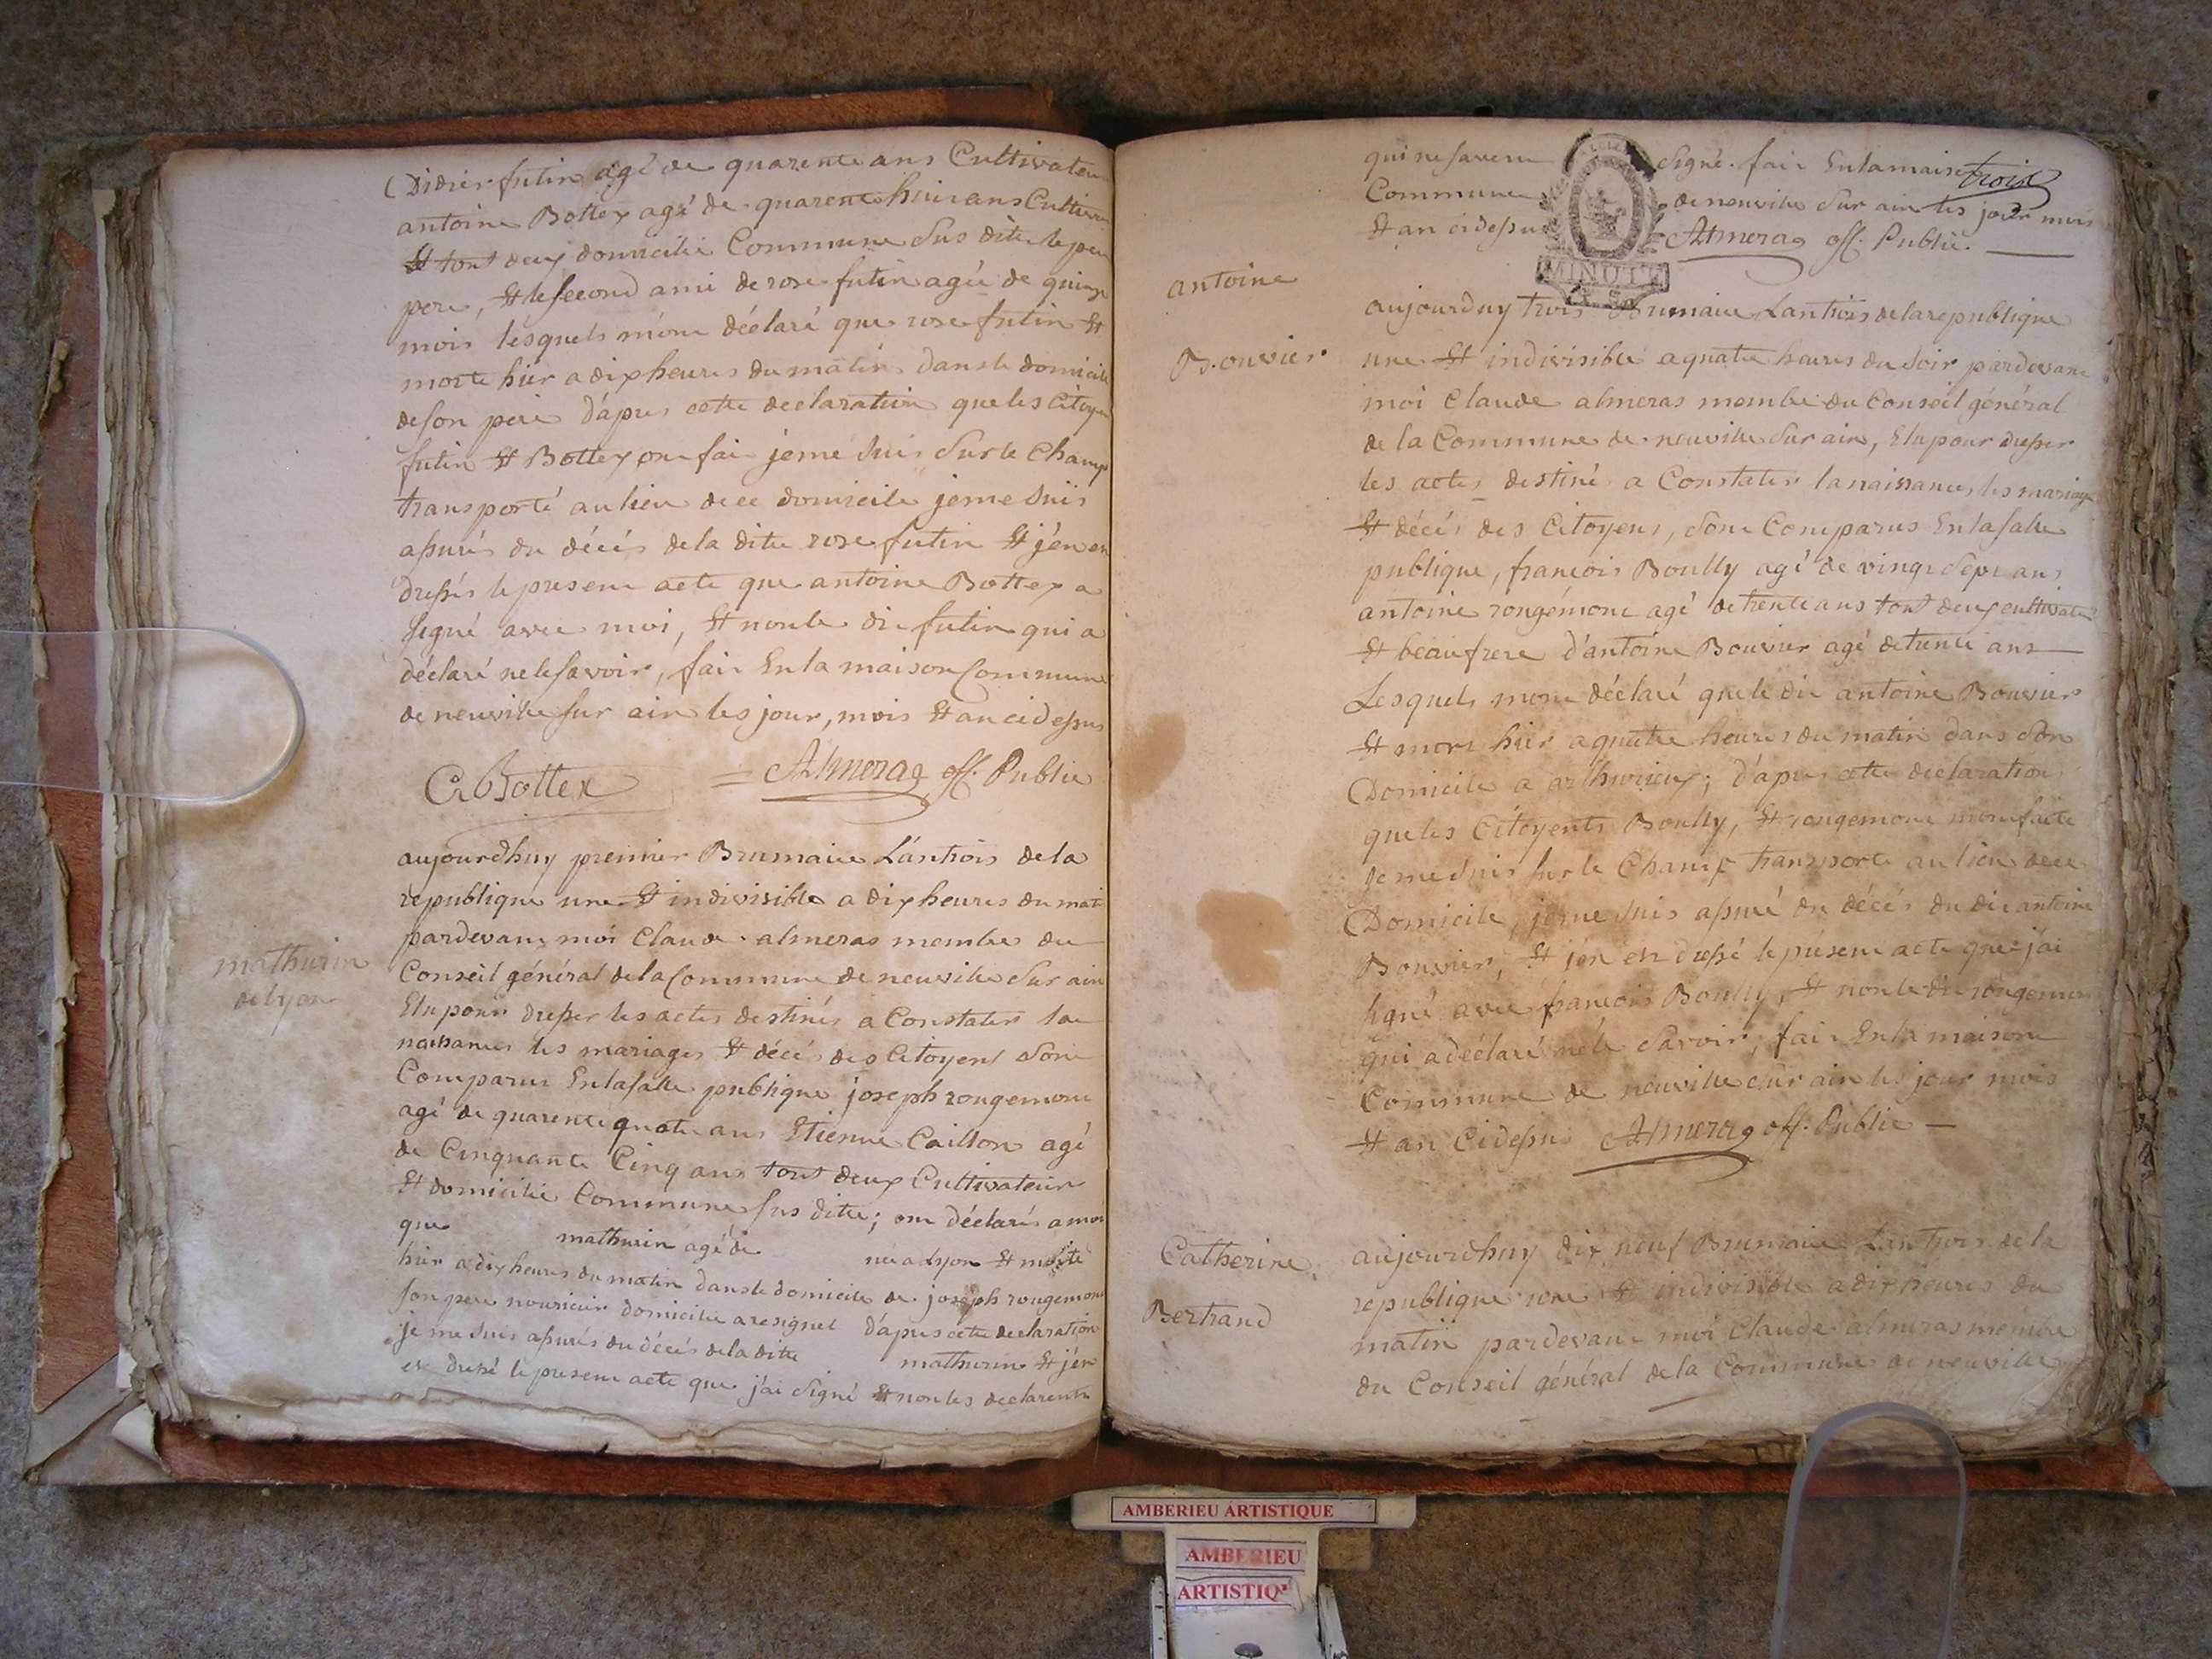 Didier futin agé de quarente ans Cultivateu
antoine Bottex agé de quarente huit ans Cultiva
Et tout deux domicilié Commune Sus dite le pr
pere, Et le second ami de rose futin agée de quinze
mois lesquels m'ont déclaré que rose futin Et
morte hier a dix heures du matin dans le domicile
de son pere d'apres cette declaration que les citoyen
futin Et Bottex ont fait je me suis Sur le Champ
transporté au lieu de ce domicile je me suis
assurés du décés de la dite rose futin Et j'en en
dressés le present acte que antoine Bottex a
signé avec moi, Et non le dit futin qui a
déclaré ne le savoir, fait En la maison Commune
de neuville sur ain les jour, mois Et an ci dessus
Bottex = Almeras off. Public
mathurin
de lyon
aujourdhuy premier Brumaire L'antrois de la
republique une Et indivisible a dix heures du mati
pardevant moi Claude almeras membre du
Conseil général de la Commune de neuville Sur ain
Elu pour dresser les actes destinés a Constater la
naissances les mariages Et décés des Citoyens Sont
Comparus En la salle publique joseph rongemont
agé de quarente quatre ans Etienne Caillon agé
de Cinquante Cinq ans tout deux Cultivateur
Et domicilié Commune sus dite; ont déclarés a moi
que mathurin agé de née a Lyon Et morte
hier a dix heures du matin dans le domicile de joseph rongemont
son pere nouricier domicilié a resignel d'apres cette declaration
je me suis assurés du décés de la ditte mathurin Et j'en
ex dressé le present acte que j'ai Signé Et non les declarents
troix
qui ne savent Signé. fait En la maison
Commune de neuville Sur ain les jour mois
Et an ci dessus Almeras off. Public.
MINUTE
antoine
Bouvier
aujourduy trois Brumaire Lantrois de la republique
une Et indivisible a quatre heures du Soir pardevant
moi Claude almeras membre du Conseil général
de la Commune de neuville Sur ain, Elu pour dresser
les actes destiné a Constater la naissances, les mariage
Et décés des Citoyens, Sont Comparus En la salle
publique, françois Boully agé de vingt Sept ans
antoine rongemont agé de trente ans tout deux cultivateu
Et beaufrere d'antoine Bouvier agé de trente ans
Lesquels mont déclaré que le dit antoine Bouvier
Et mort hier a quatre heures du matin dans Son
Domicile a arthurieux; d'apres cette declaration
que les Citoyents Boully, Et rongemont mont faite
je me suis sur le Champ transporté au lieu de ce
Domicile, je me suis assuré du décés du dit antoine
Bouvier, Et j'en ex dressé le present acte que j'ai
signé avec françois Boully, Et non le dit rongemon
qui a déclaré ne le Savoir, fait En la maison
Commune de neuville Sur ain les jour mois
Et an Ci dessus Almeras off. Public
Catherine
Bertrand
aujourdhuy dix neuf Brumaire Lantrois de la
republique une Et indivisible a dix heures du
matin pardevant moi Claude almeras membre
du Conseil général de la Commune de neuville
AMBERIEU ARTISTIQUE
AMBERIEU
ARTISTIQ